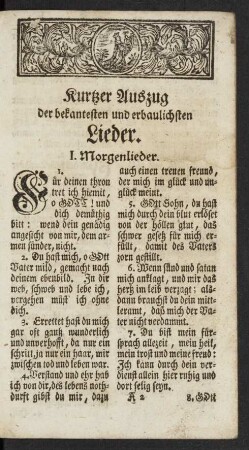 Kurtzer Auszug
der bekantesten und erbaulichsten
Lieder.
I. Morgenlieder.
1.
Für deinen thron
tret ich hiemit,
o GOTT! und
dich demüthig
bitt: wend dein genädig
angesicht von mir, dem ar-
men sünder, nicht.
2. Du hast mich, o GOtt
Vater mild, gemacht nach
deinem ebenbild. In dir
web, schweb und lebe ich,
vergehen müst ich ohne
dich.
3. Errettet hast du mich
gar oft gantz wunderlich
und unverhofft, da nur ein
schritt, ja nur ein haar, mir
zwischen tod und leben war.
4. Verstand und ehr hab
ich von dir, des lebens noth-
durft gibst du mir, dazu
auch einen treuen freund,
der mich im glück und un-
glück meint.
5. GOtt Sohn, du hast
mich durch dein blut erlöset
von der höllen glut, das
schwer gesetz für mich er-
füllt, damit des Vaters
zorn gestillt.
6. Wenn sünd und satan
mich anklagt, und mir das
hertz im leib verzagt: als-
dann brauchst du dein mitt-
leramt, daß mich der Va-
ter nicht verdammt.
7. Du bist mein für-
sprach allezeit, mein heil,
mein trost und meine freud:
Ich kann durch dein ver-
dienst allein hier ruhig und
dort selig seyn.
A 2
8. GOtt